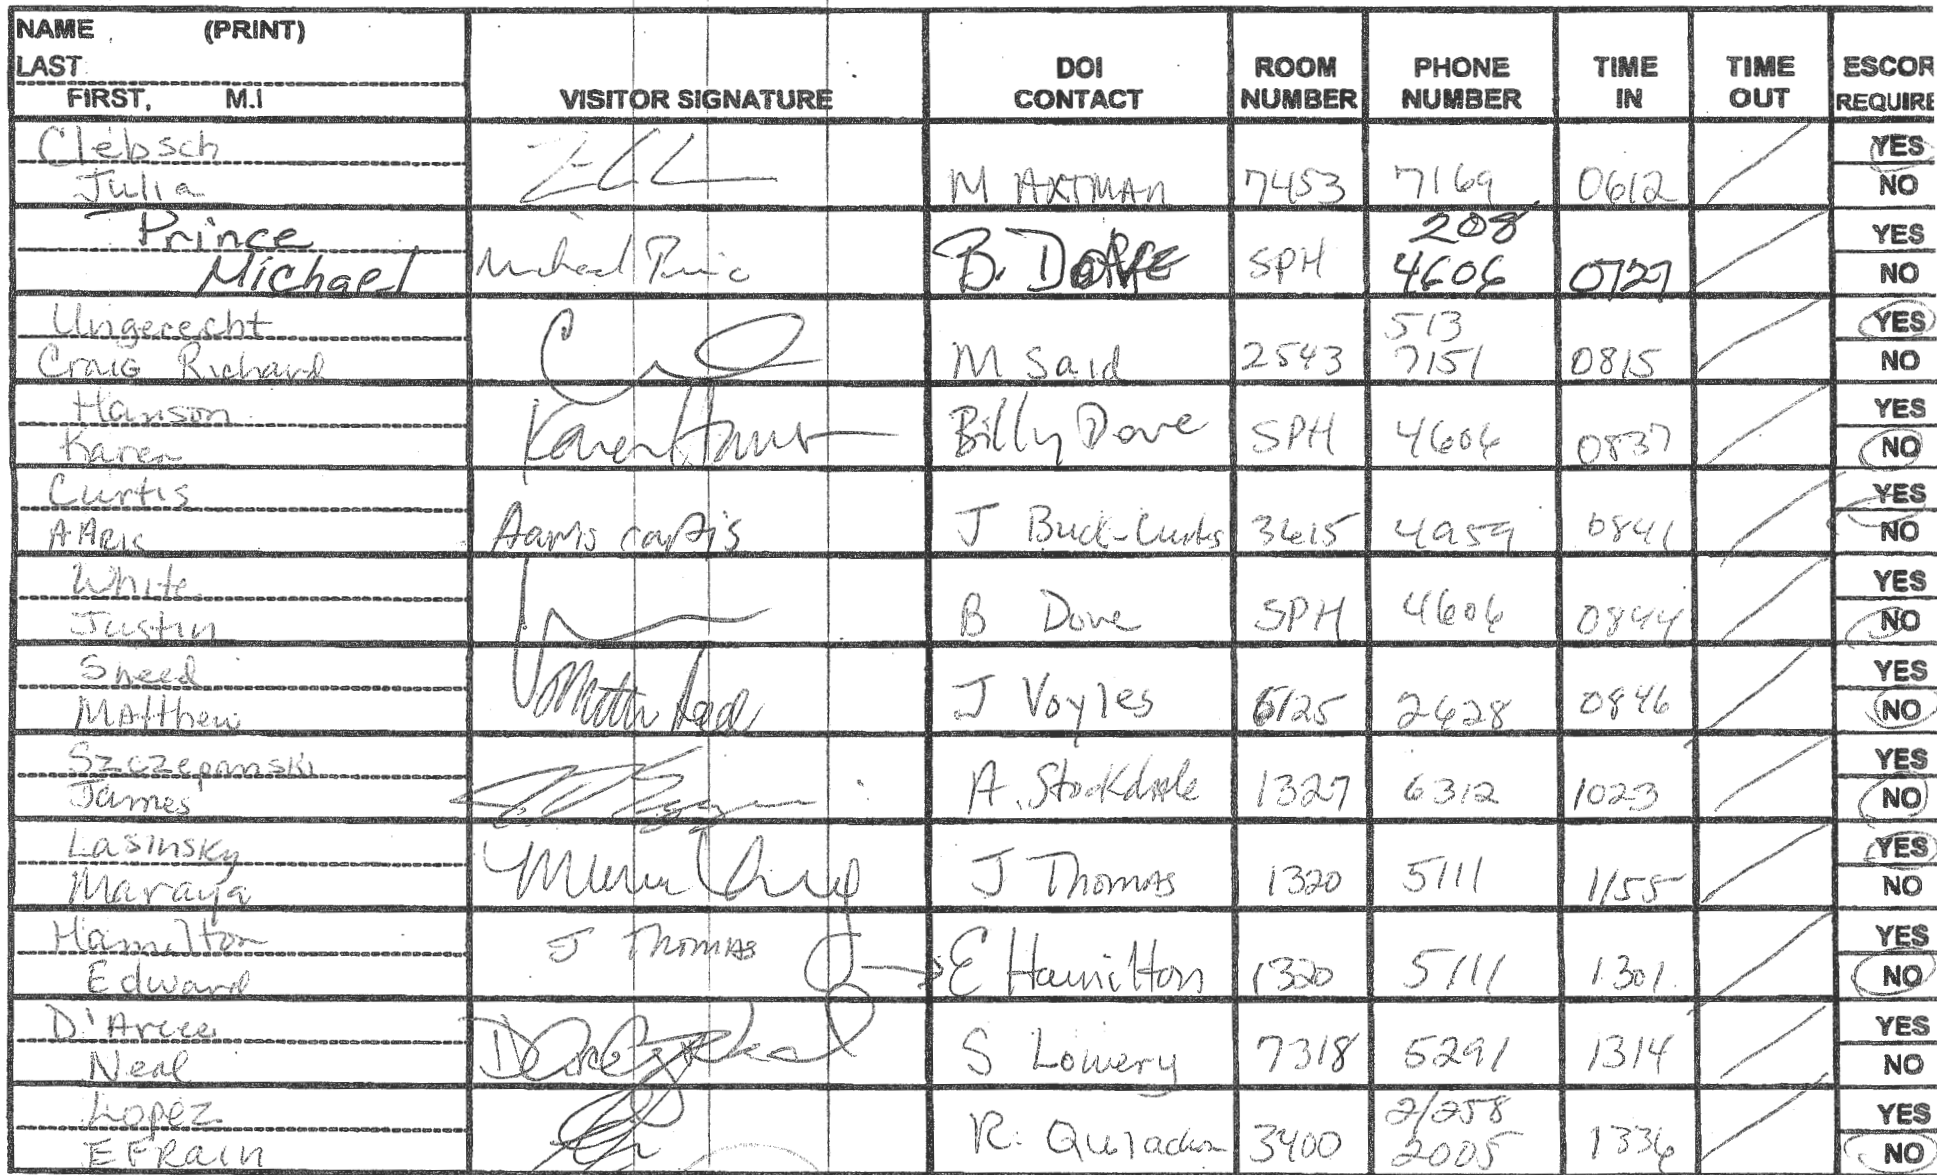 NAME (PRINT)
LAST
FIRST, M.I
VISITOR SIGNATURE
DOI CONTACT
ROOM NUMBER
PHONE NUMBER
TIME IN
TIME OUT
ESCOR
REQUIRE
Clebsch
Julia
M AXTMAN 7453 7169 0612 YES NO
Prince
Michael
Michael Prince
B. 
SPH 208
4606 0727 YES NO
Ungerecht
Craig Richard
M Said 2543 513
7151 0815 YES NO
Hanson
Karen
Karen
Billy Dove SPH 4606 0837 YES NO
Curtis
J Buck-Curtis 3615 4959 0841 YES NO
White
Justin
B Dove SPH 4606 0844 YES NO
Sneed
Matthew
J Voyles 2628 0846 YES NO
Szczepanski
James
A. Stockdale 1327 6312 1023 YES NO
Lasinsky
Maraya
J Thomas 1320 5111 1155 YES NO
Hamilton
Edward
J Thomas
E Hamilton 1320 5111 1301 YES NO
Neal
S Lowery 7318 5291 1314 YES NO
Lopez
EFRAIN
R. 3400 2/258
2005 1336 YES NO